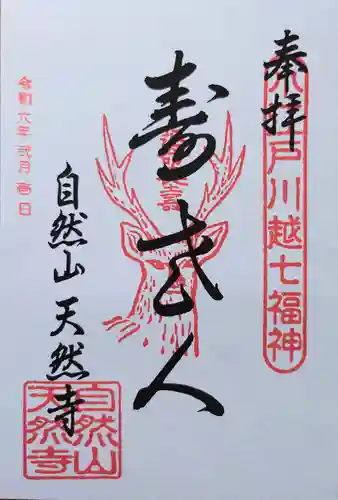 奉拝
小江戸川越七福神
壽老人
自然山 天然寺
自然山
天然寺
令和六年弐月壱日